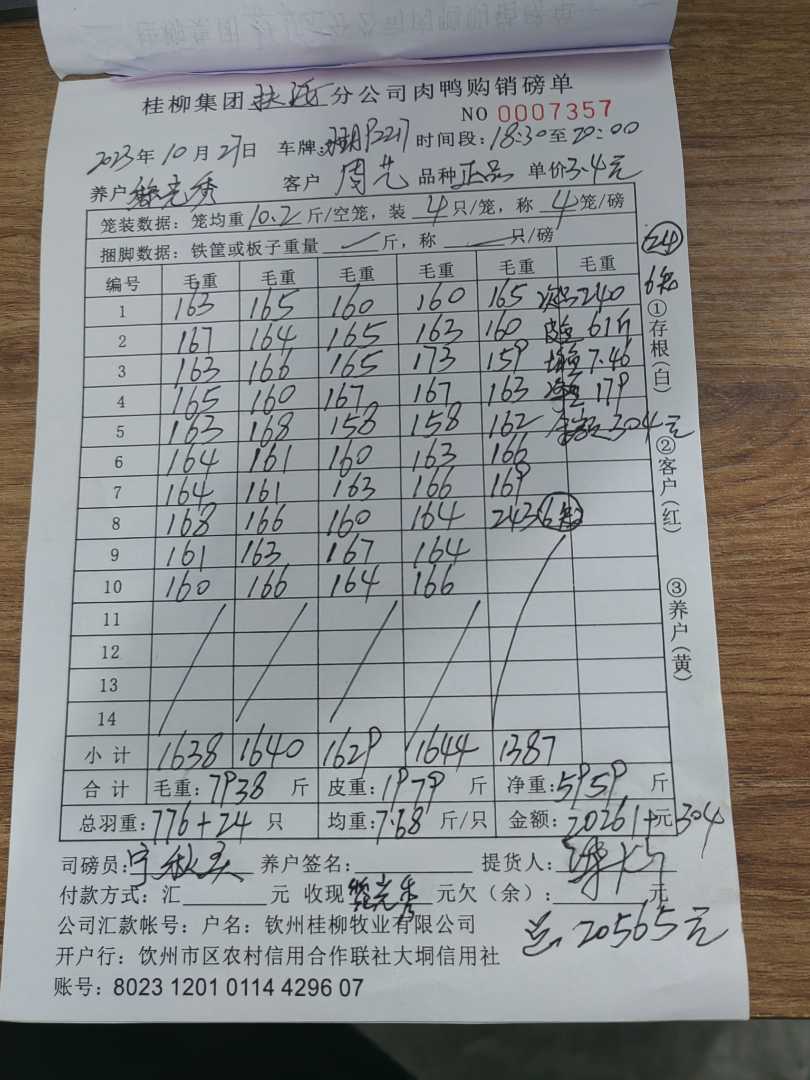 桂柳集团 分公司肉鸭购销磅单
NO 0007357
2023年10月27日 车牌: 时间段:18:30至20:00
养户 光秀 客户 周艺 品种 正品 单价3.4元
笼装数据: 笼均重10.2斤/空笼, 装4只/笼, 称4笼/磅
捆脚数据: 铁筐或板子重量 斤, 称 只/磅
24
6只
编号 毛重 毛重 毛重 毛重 毛重 毛重
1 163 165 160 160 165 240
2 167 164 165 163 160 皮重 61斤
3 163 166 165 173 159 均重 7.46
4 165 160 167 167 163 净重 179
5 163 168 158 158 162 金额 304元
6 164 161 160 163 166
7 164 161 163 166 169
8 168 166 160 164 243 6只
9 161 163 167 164
10 160 166 164 166
11
12
13
14
小计 1638 1640 1629 1644 1387
合计 毛重:7938斤 皮重:1979斤 净重:5959斤
总羽重:776+24只 均重:7.68斤/只 金额:20261+元304
①存根(白)
②客户(红)
③养户(黄)
司磅员: 养户签名: 提货人:
付款方式:汇 元 收现 光秀 元欠(余): 元
公司汇款帐号: 户名: 钦州桂柳牧业有限公司
总 20565元
开户行: 饮州市区农村信用合作联社大垌信用社
账号: 8023 1201 0114 4296 07